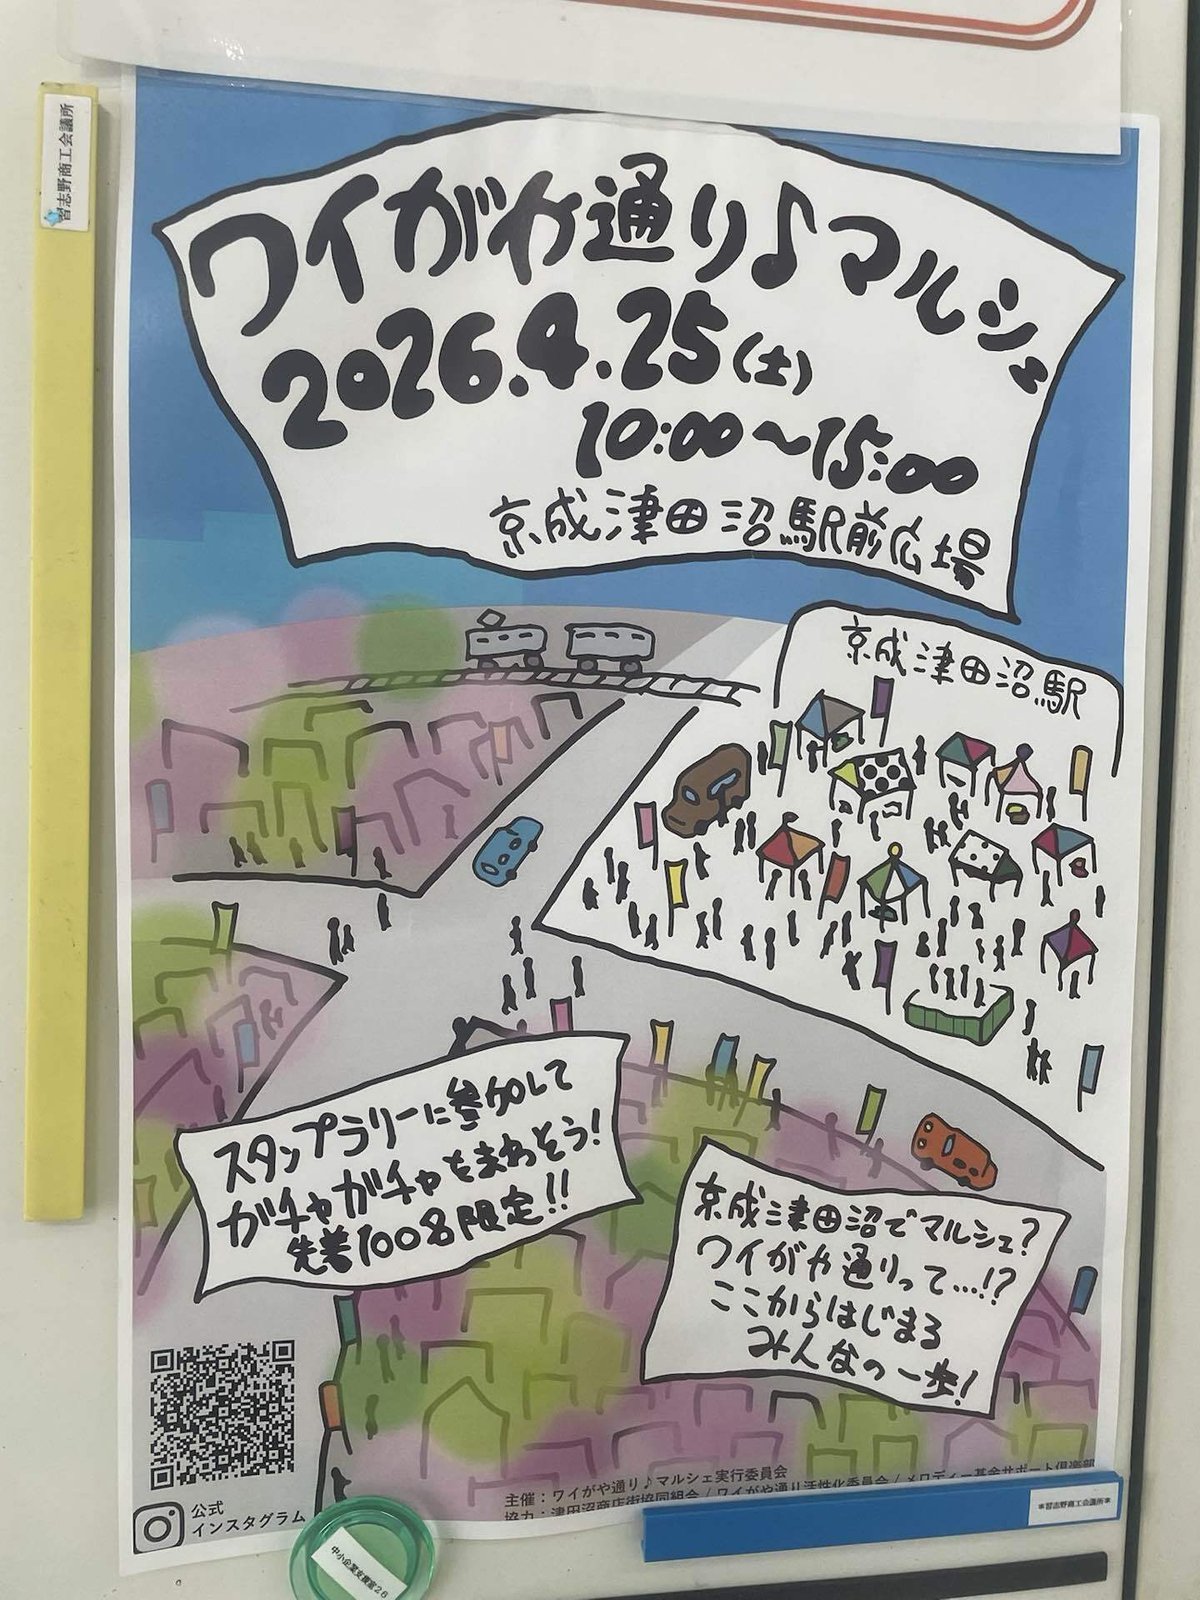 習志野商工会議所
ワイがや通り♪マルシェ
2026.4.25(土)
10:00〜15:00
京成津田沼駅前広場
京成津田沼駅
スタンプラリーに参加して
ガチャガチャをまわそう!
先着100名限定!!
京成津田沼でマルシェ?
ワイがや通りって…!?
ここからはじまる
みんなの一歩!
公式
インスタグラム
主催:ワイがや通り♪マルシェ実行委員会
協力:津田沼商店街協同組合/ワイがや通り活性化委員会/メロディー基金サポート倶楽部
*習志野商工会議所*
中小企業支援室26